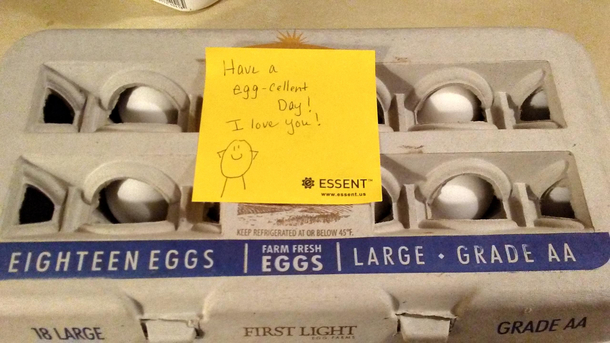 Have a
egg-cellent
Day!
I love you!
ESSENT™
www.essent.us
KEEP REFRIGERATED AT OR BELOW 45°F.
EIGHTEEN EGGS
FARM FRESH
EGGS
LARGE • GRADE AA
18 LARGE
FIRST LIGHT
EGG FARMS
GRADE AA